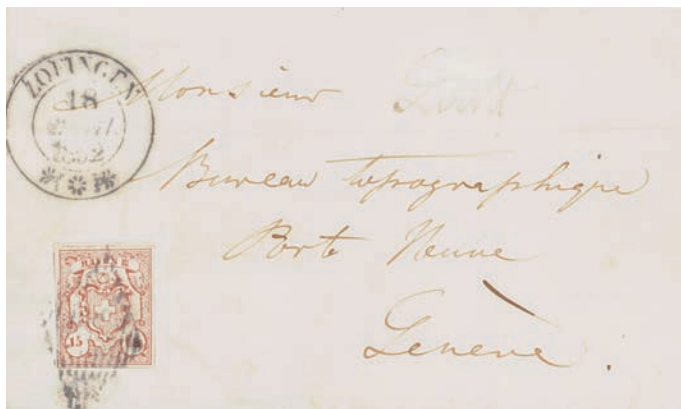 ZOFINGEN
18
1852
Monsieur
Bureau topographique
Porte Neuve
Genève.
RAYON
15